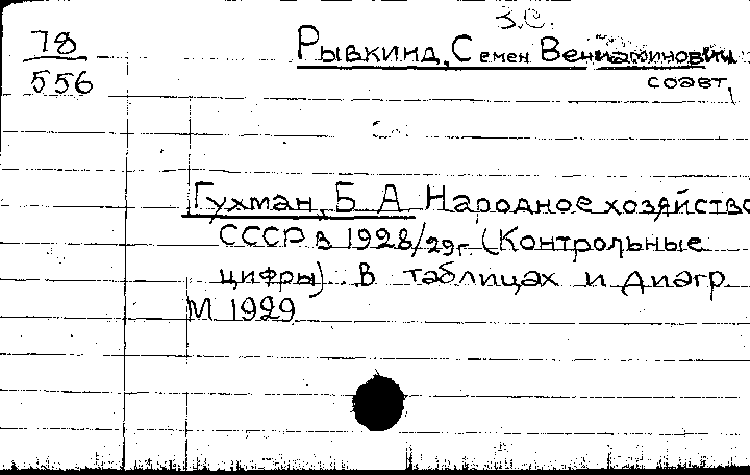 З.С.
78
556
Рывкинд, Семен Вениаминович
соавт,
Гухман, Б А Народное хозяйство
СССР в 1928/29г (Контрольные
цифры) В таблицах и диагр
М 1929